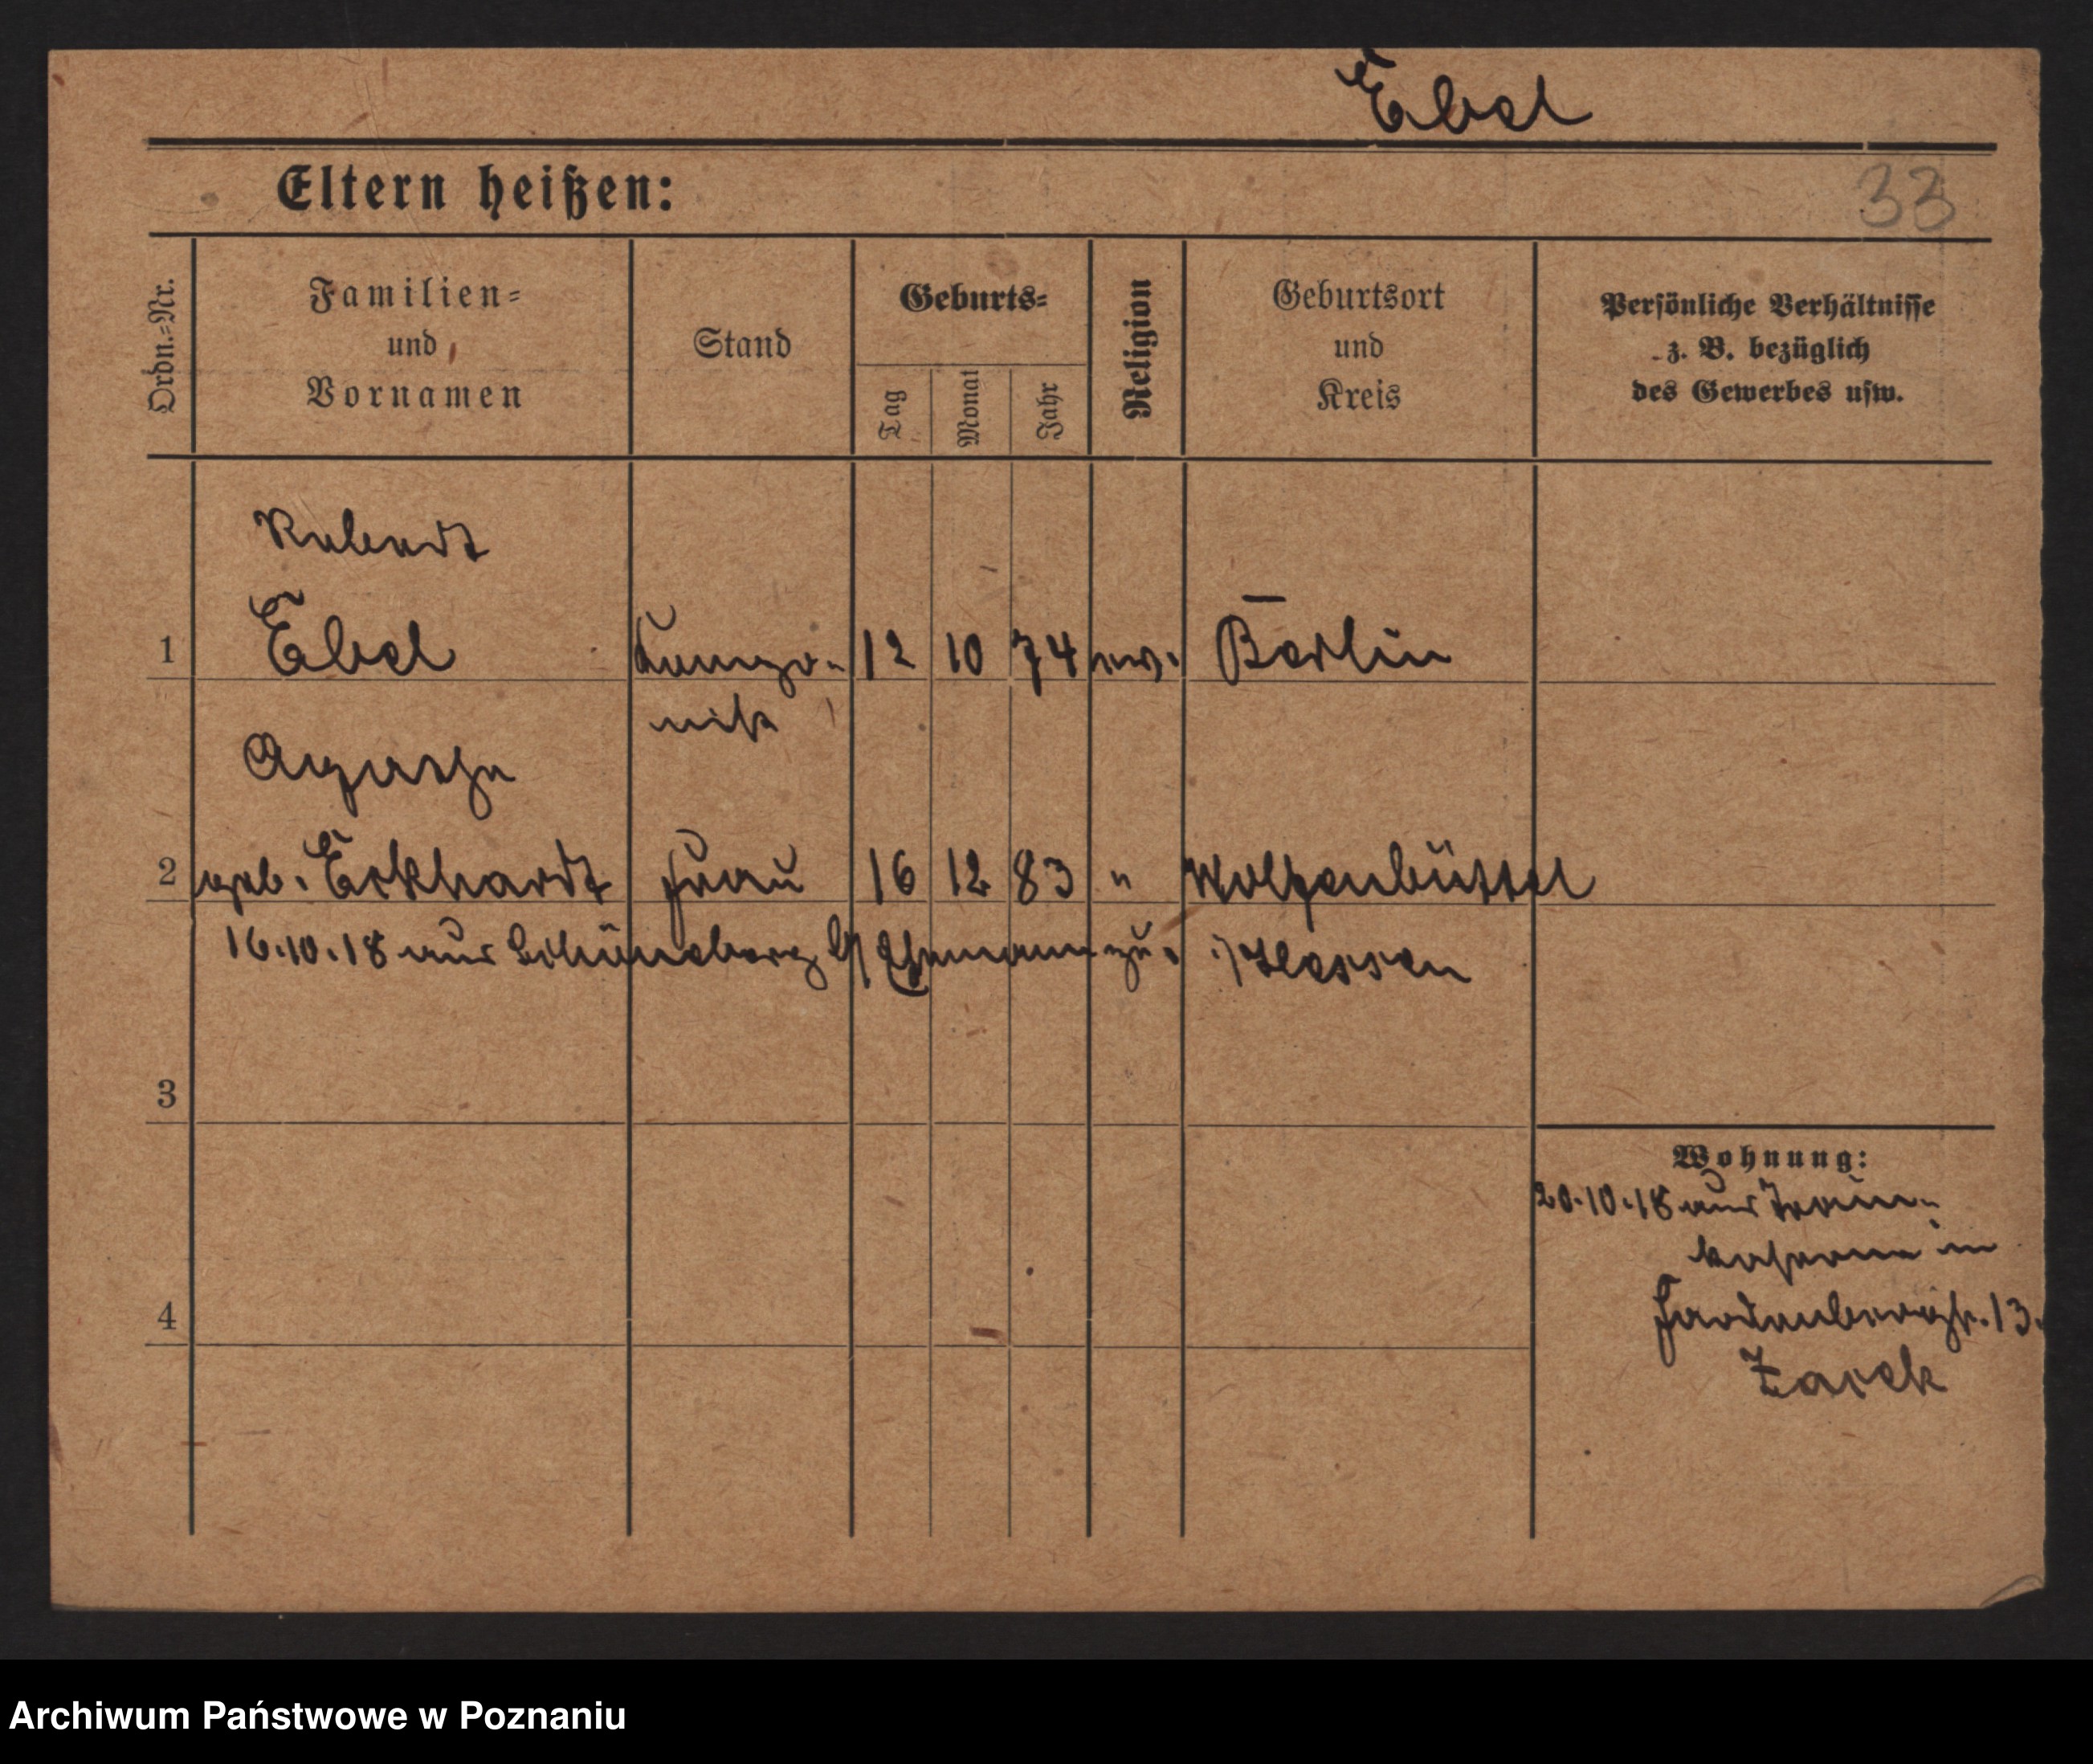 Ebel
Eltern heißen:
33
Ordn.=Nr.
Familien=
und
Vornamen
Stand
Geburts=
Tag
Monat
Jahr
Religion
Geburtsort
und
Kreis
Persönliche Verhältnisse
z. B. bezüglich
des Gewerbes usw.
Robert
1 Ebel 12 10 74 ev. Berlin
Agathe
2 geb. Eckhardt Frau 16 12 83 " Wolfenbüttel
16.10.18 aus Schöneberg Ehemann zu. Hessen
3
Wohnung:
20.10.18 aus Train-
kaserne in
4
13.
Zarek
Archiwum Państwowe w Poznaniu